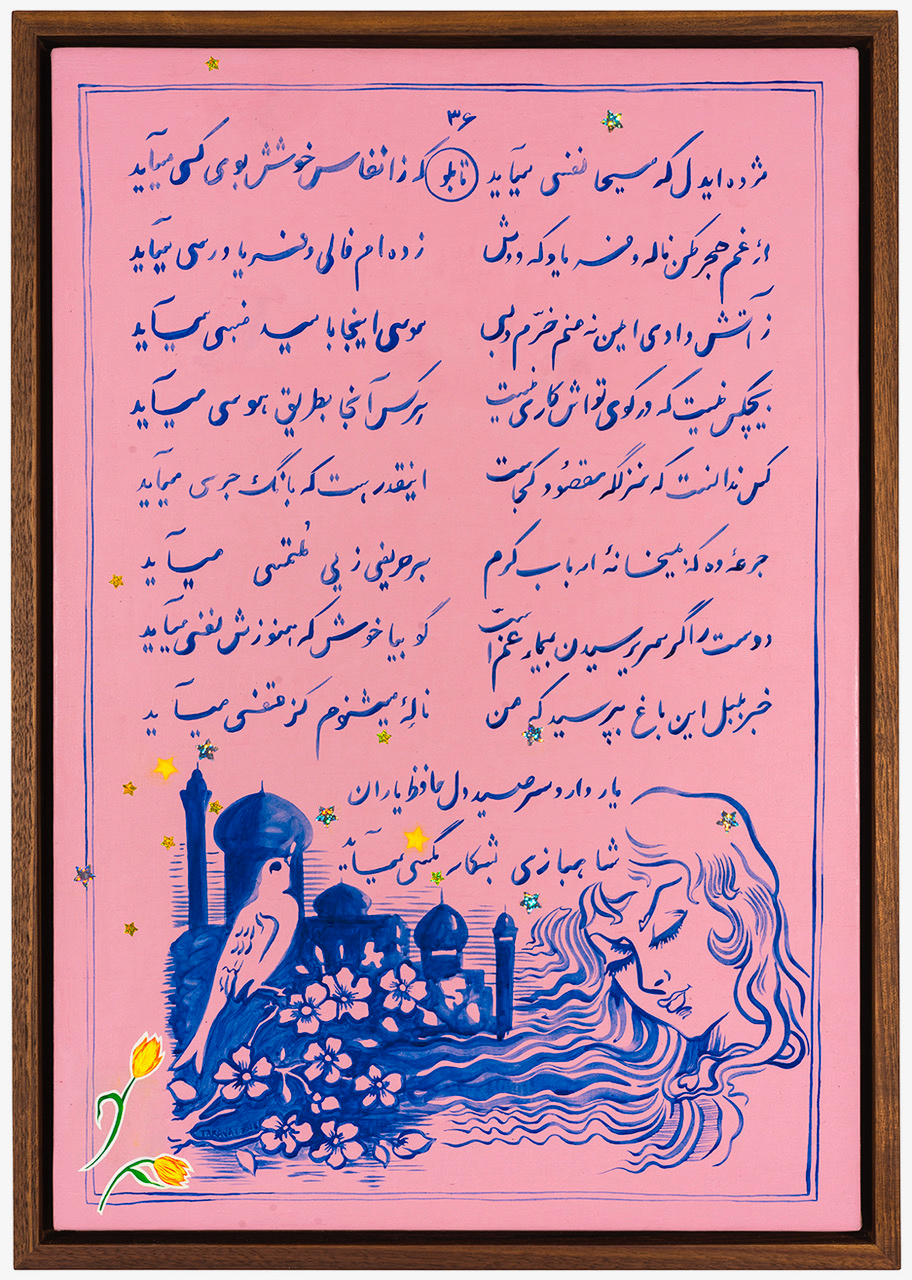 ۳۶
مژده ایدل که مسیحا نفسی میآید تابلو که زانفاس خوشش بوی کسی میآید
از غم هجر مکن ناله و فریاد که دوش زده ام فالی و فریادرسی میآید
ز آتش وادی ایمن نه منم خرّم و بس موسی اینجا بامید قبسی میآید
هیچکس نیست که در کوی تواش کاری نیست هرکس آنجا بطریق هوسی میآید
کس ندانست که منزلگه مقصود کجاست اینقدر هست که بانگ جرسی میآید
جرعهٔ ده که بمیخانهٔ ارباب کرم هر حریفی ز پی مُلتمسی میآید
دوست را گر سر پرسیدن بیمار غم است گو بیا خوش که هنوزش نفسی میآید
خبر بلبل این باغ بپرسید که من نالهٔ میشنوم کز قفسی میآید
یار دارد سر صید دل حافظ یاران
شاهبازی بشکار مگسی میآید